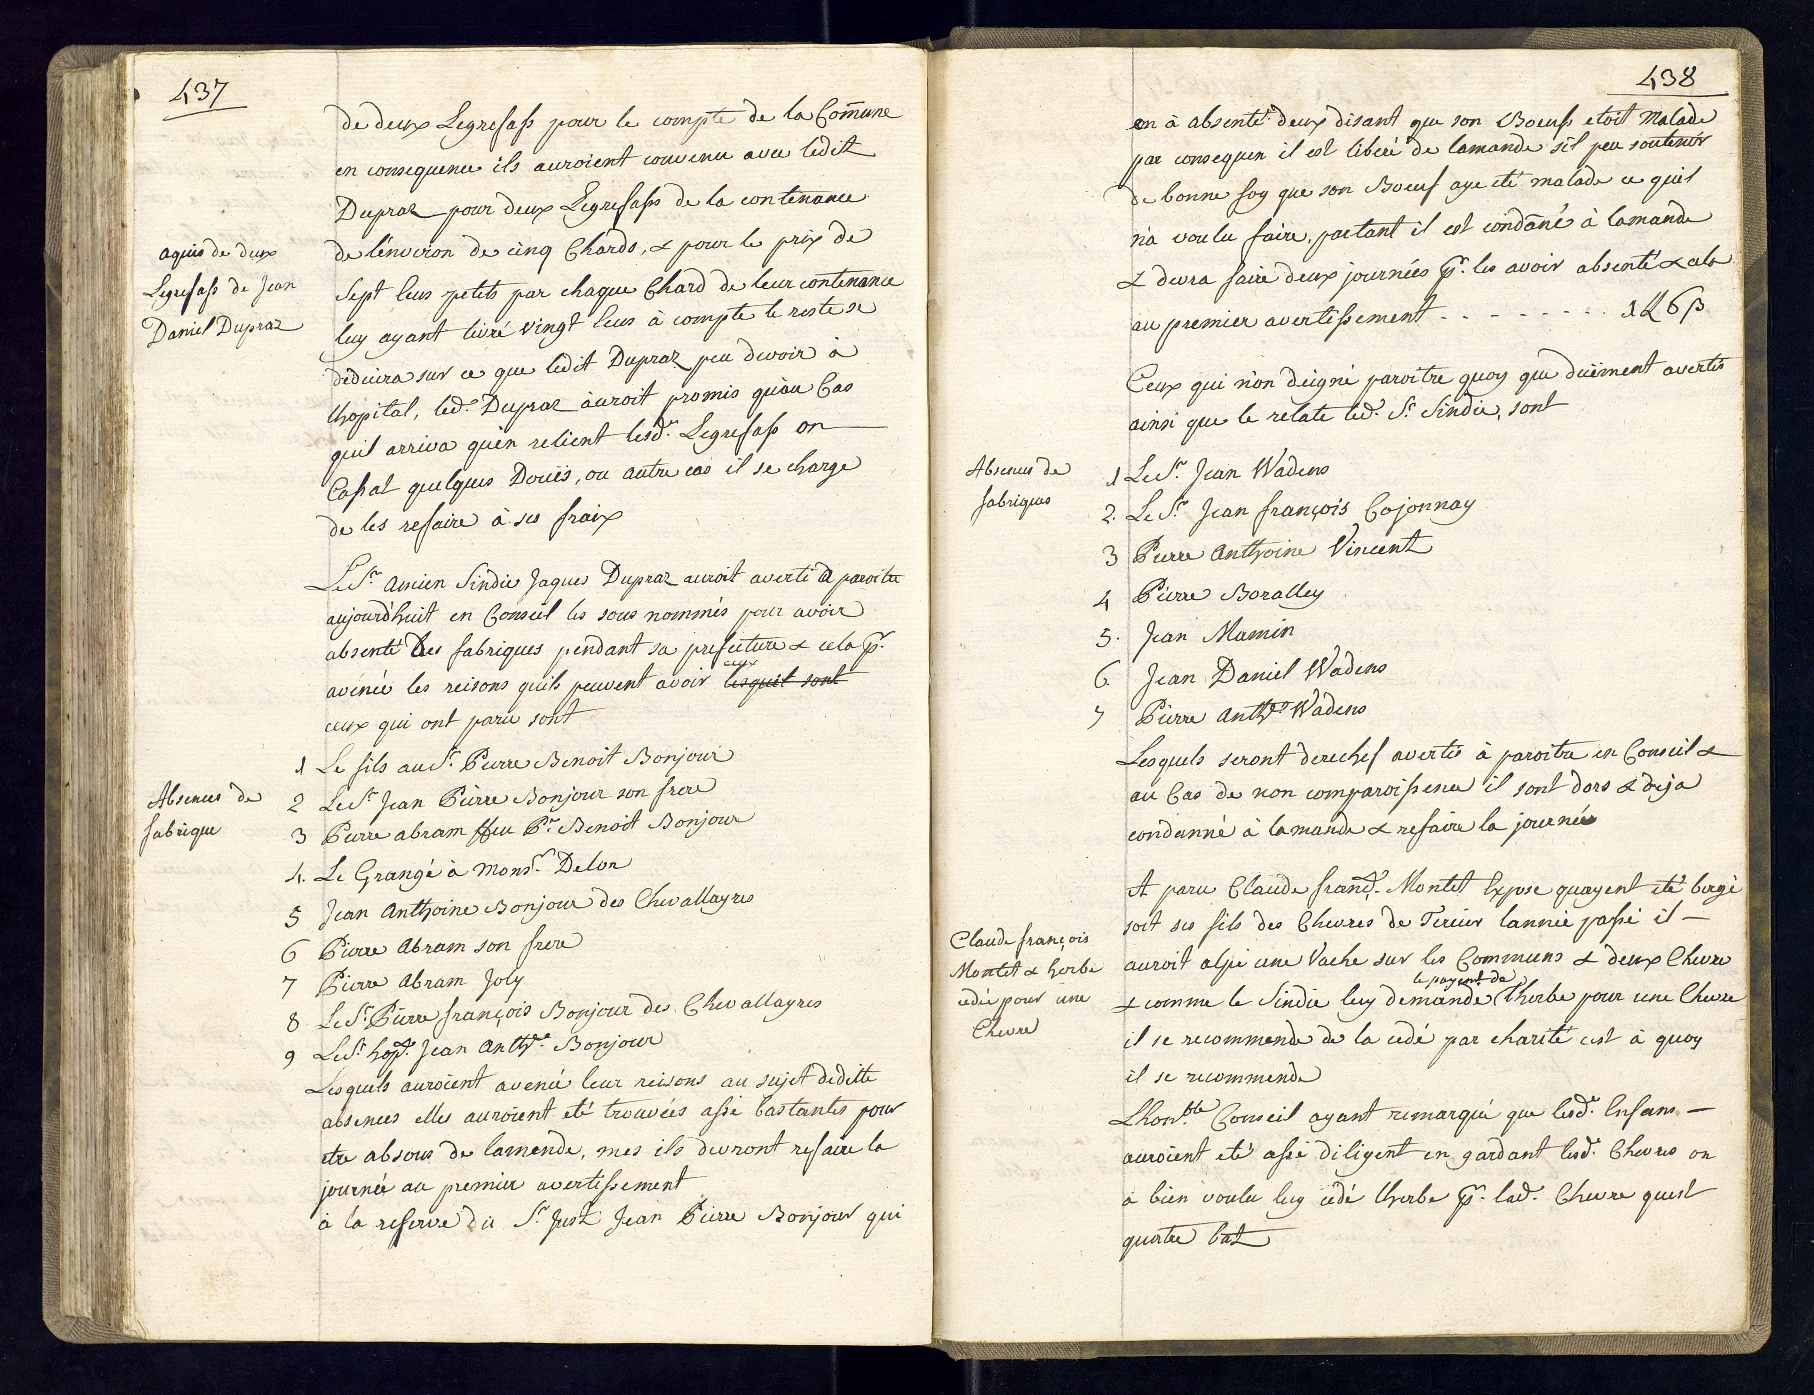 437
de deux Legrefass pour le compte de la Com̄une
en consequence ils auroient convenu avec ledit
Dupraz pour deux Legrefass de la contenance
de lénviron de cinq Chards, & pour le prix de
aquis de deux
Legrefass de Jean
Daniel Dupraz
Sept leus petits par chaque Chard de leur contenance
luy ayant livré vingt leus à compte le reste se
déduira sur ce que ledit Dupraz peu devoir à
lhopital, led.t Dupraz àuroit promis qu'au Cas
quil arriva quèn relient lesd.ts Legrefass on
Cassat quelques Douës, ou autre cas il se charge
de les refaire à ses fraix
Le S.r Ancien Sindic Jaques Dupraz auroit averti à paroitre
aujourd'huit en Conseil les sous nommés pour avoir
absenté les fabriques pendant sa prefecture & cela p.r
avéncé les reisons quils peuvent avoir ceux lesquel sont
ceux qui ont paru sont
1 Le fils au S.r Pierre Benoit Bonjour
Absences de
fabrique
2 Le S.r Jean Pierre Bonjour son frere
3 Pierre abram ffeu P.re Benoit Bonjour
4. Le Grangé à mons.r Delor
5 Jean Anthoine Bonjour des Chevallayres
6 Pierre Abram son frere
7 Pierre Abram Joly
8 Le S.r Pierre françois Bonjour des Chevallayres
9 Le S.r hop.r Jean Anth.ne Bonjour
Lesquels auroient avencé leur reisons au sujet deditte
absences elles auroient eté trouvées assé bastantes pour
etre absous de lamende, mes ils devront refaire la
journée au premier avertissement
à la reserve du S.r Just.r Jean Pierre Bonjour qui
438
en à absenté deux disant que son Boeuf etoit Malade
par consequen il est libéré de lamande sil peu soutenir
de bonne foy que son Boeuf aye eté malade ce quil
n'a voulu faire, partant il est condāné à lamande
& devra faire deux journées p.r les avoir absenté & cela
au premier avertissement - - - - - - - - - 1 L 6 β
Ceux qui n'on deigné paroitre quoy que düement avertis
ainsi que le relate led.t S.r Sindic, sont
Absences de
fabriques
1 Le S.r Jean Wadens
2. Le S.r Jean françois Cojonnay
3 Pierre Anthoine Vincent
4 Pierre Boralley
5. Jean Mamin
6. Jean Daniel Wadens
7 Pierre Anth.ne Wadens
Lesquels seront derechef avertis à paroitre en Conseil &
au Cas de non comparoissence il sont dors & deja
condanné à lamande & refaire la journée
A paru Claude franç.s Montet Expose quayent eté bergé
soit ses fils des Chevres de Tercier lannée passé il
auroit alpé une Vache sur les Communs & deux Chevre
Claude françois
Montet & herbe
cédée pour une
Chevre
& comme le Sindic luy demande le payem.t de lherbe pour une Chevre
il se recommende de la cedé par charité cest à quoy
il se recommende
Lhon.ble Conseil ayant remarqué que lesd.ts Enfans
auroient eté assé diligent en gardant lesd.ts Chevres on
a bien voulu luy cedé lherbe p.r lad.te Chevre quest
quatre batz